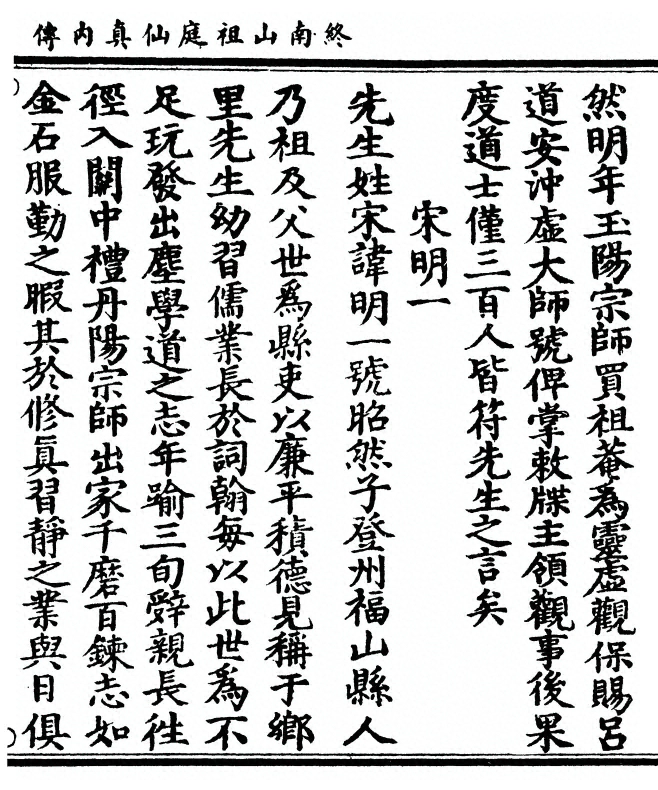 終南山祖庭仙真内傳
然明年玉陽宗師買祖菴為靈虛觀保賜呂
道安沖虛大師號俾掌敕牒主領觀事後果
度道士僅三百人皆符先生之言矣
宋明一
先生姓宋諱明一號昭然子登州福山縣人
乃祖及父世為縣吏以廉平積德見稱于鄉
里先生幼習儒業長於詞翰每以此世為不
足玩發出塵學道之志年踰三旬辭親長往
徑入關中禮丹陽宗師出家千磨百鍊志如
金石服勤之暇其於修真習靜之業與日俱